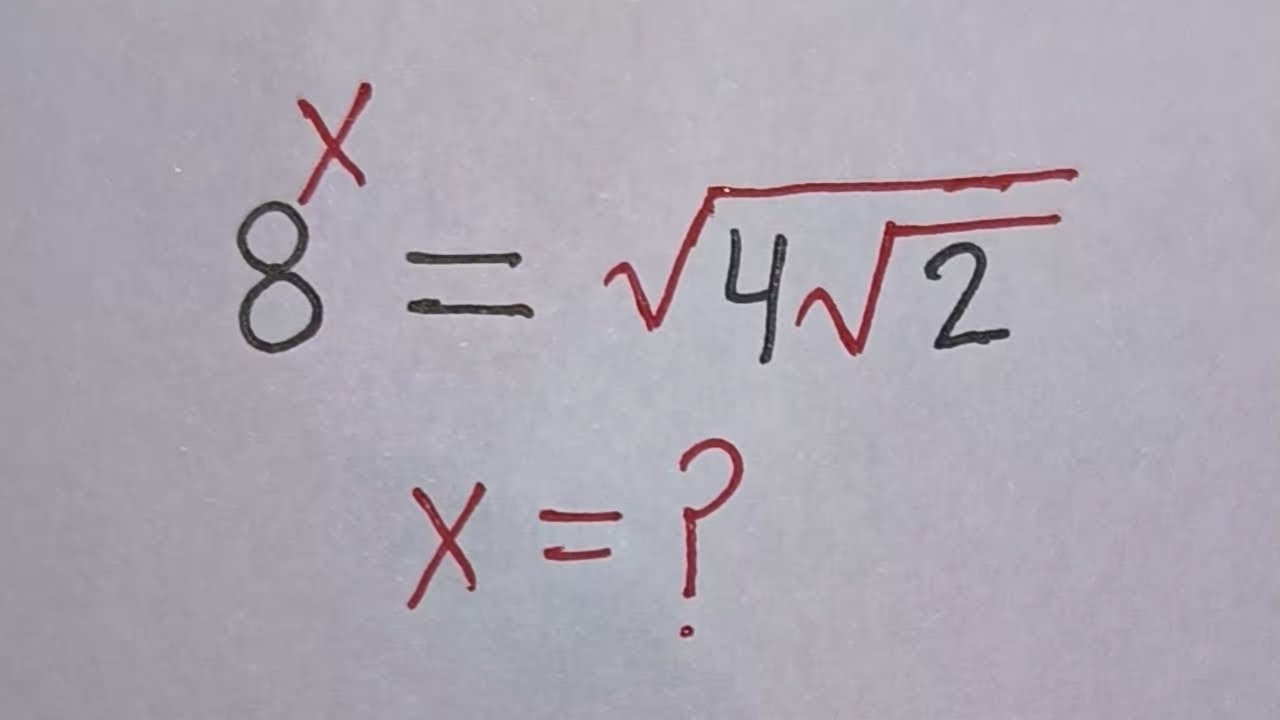 8ˣ = √(4√2)
x = ?